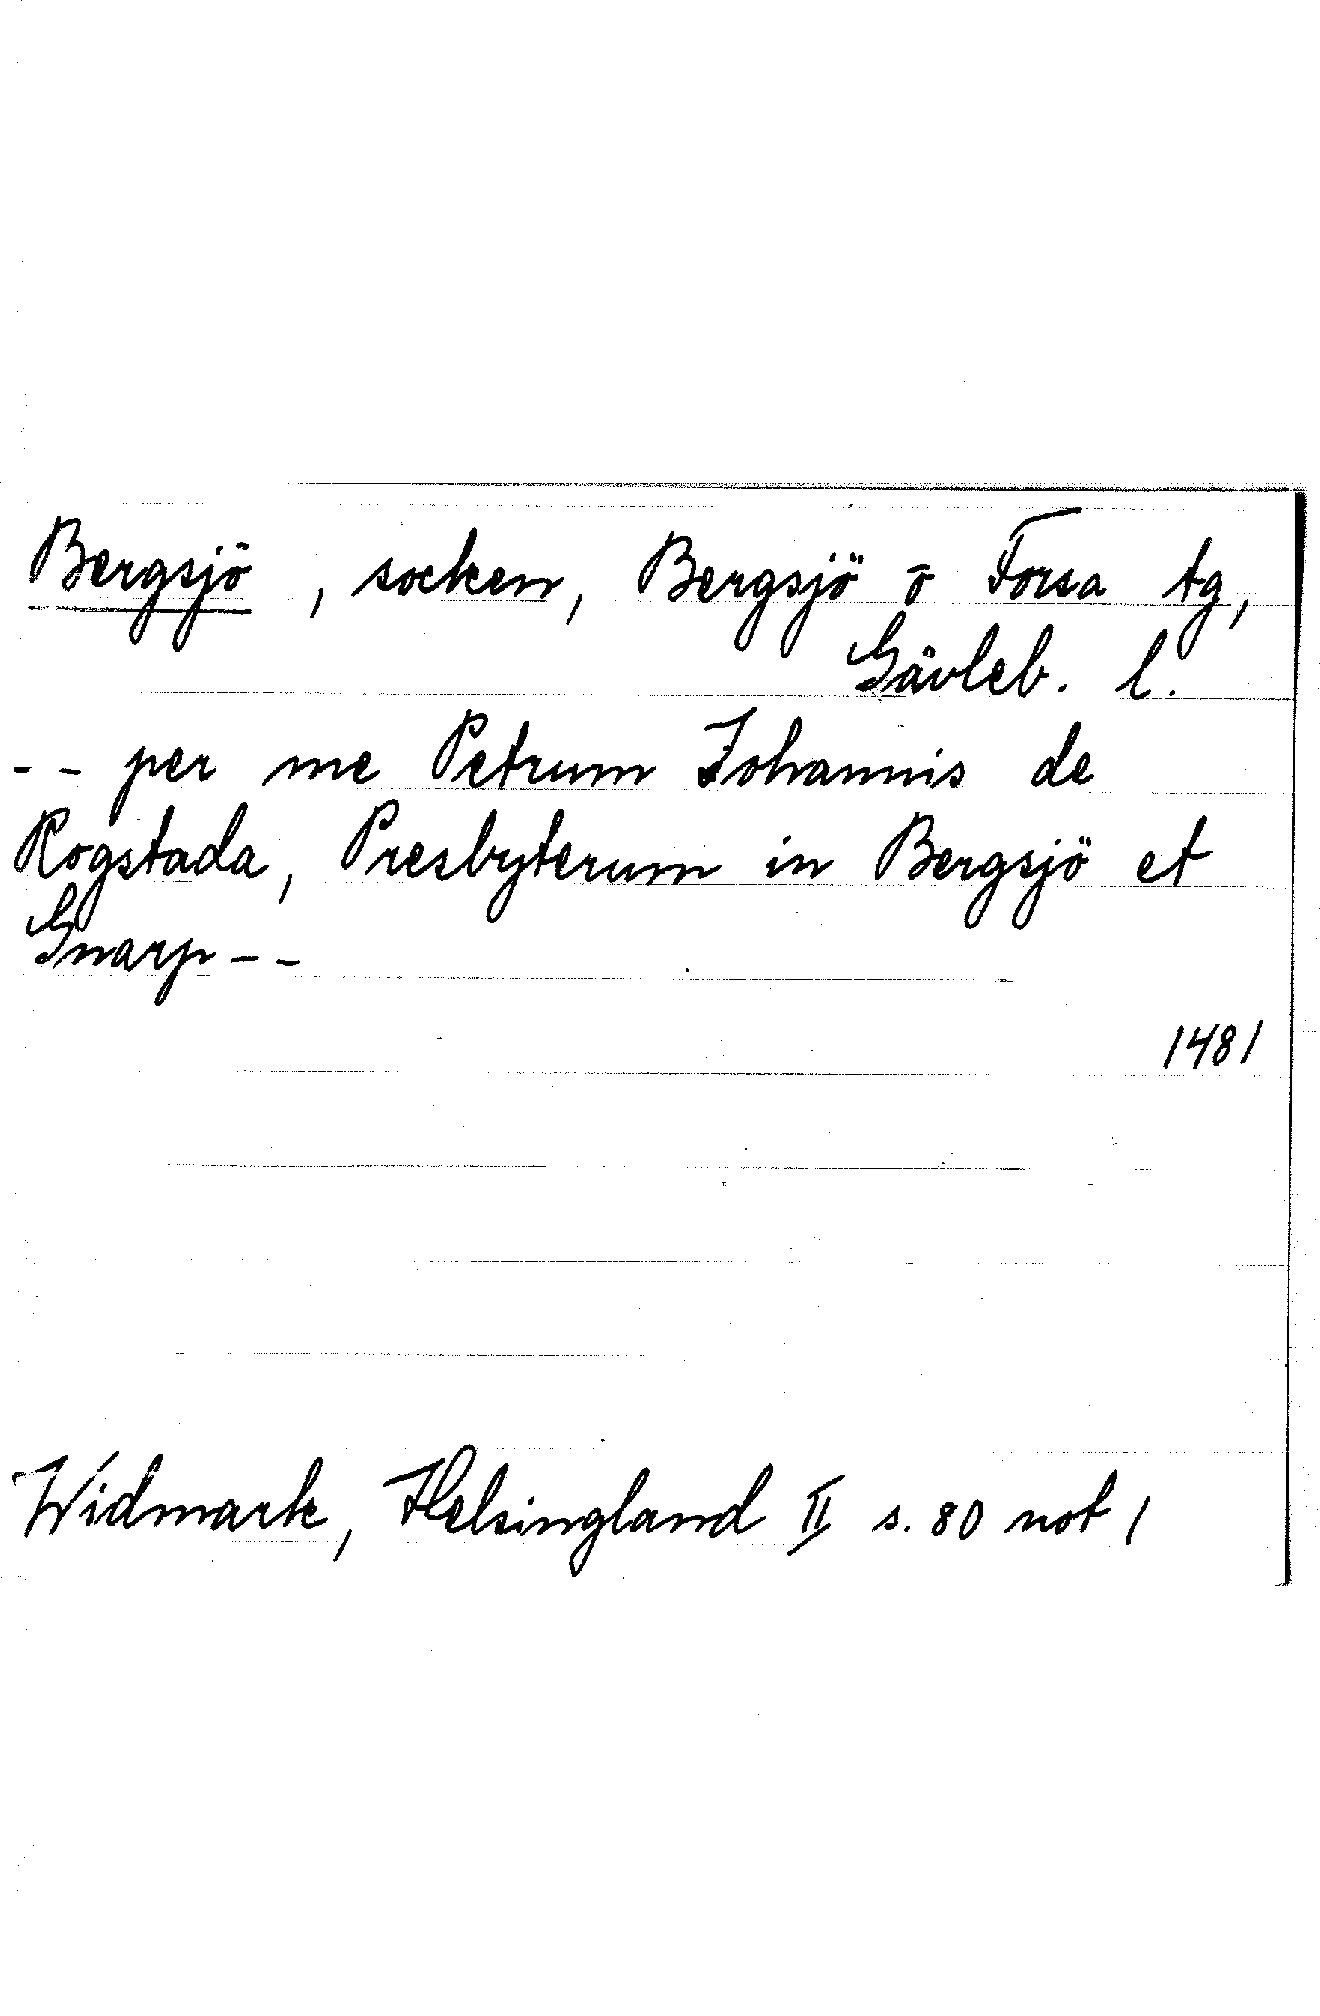 Bergsjö, socken, Bergsjö o Forsa tg,
Gävleb. l.
-- per me Petrum Johannis de
Rogstada, Presbyterum in Bergsjö et
Gnarp --
1481
Widmark, Helsingland II s. 80 not 1